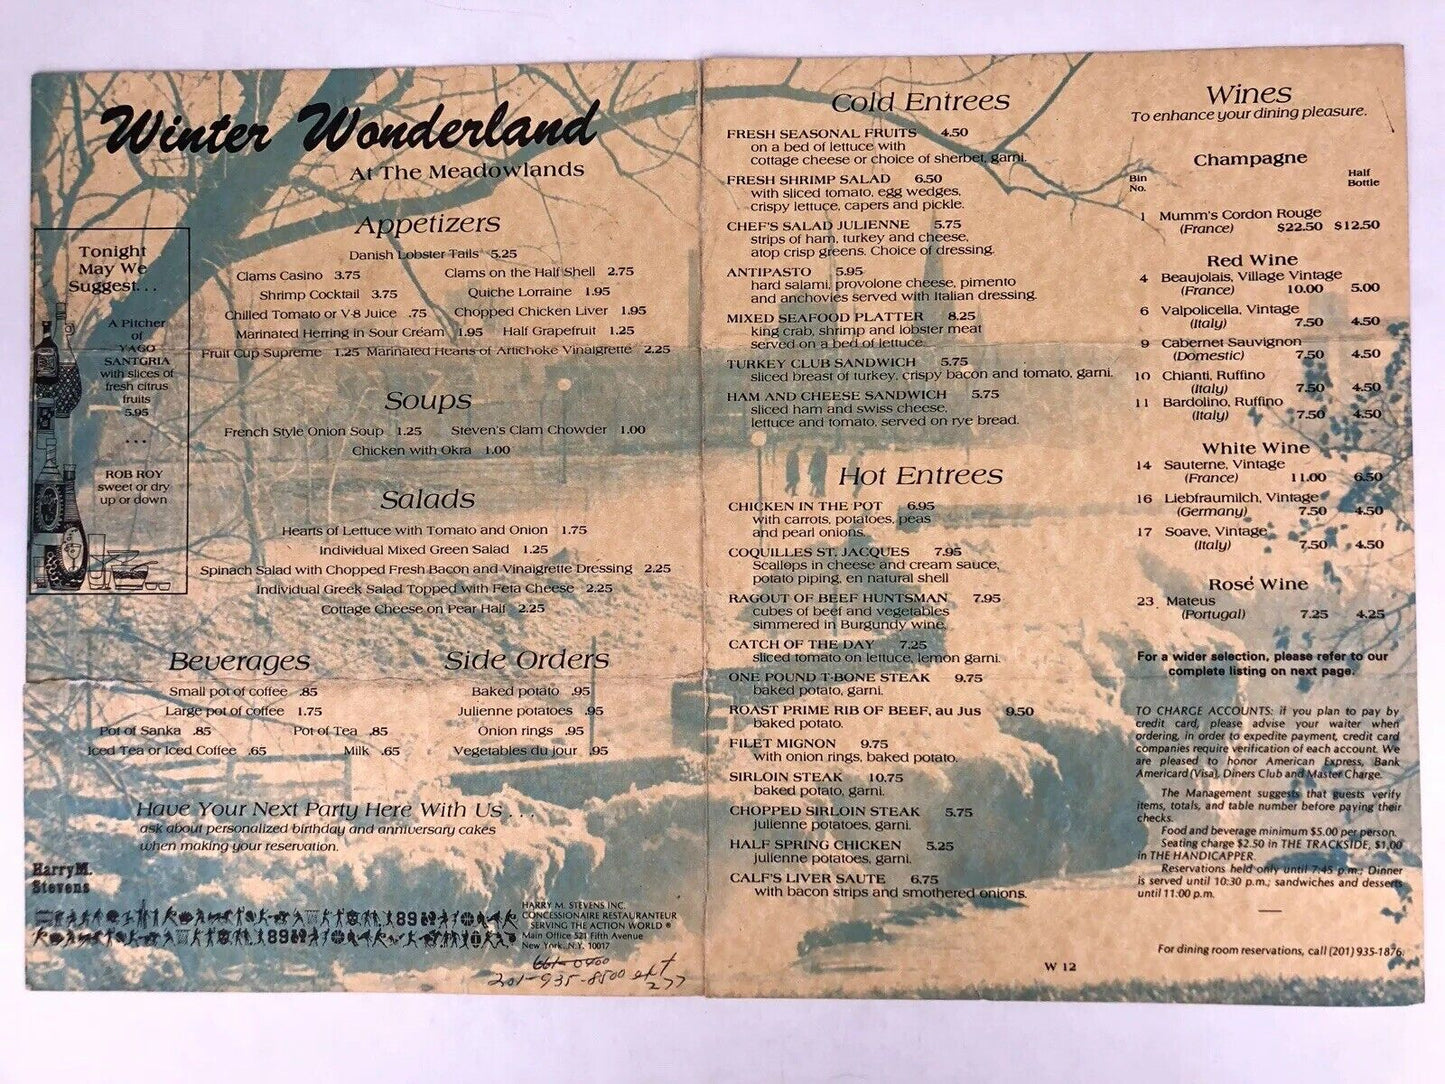 Winter Wonderland
At The Meadowlands
Tonight
May We
Suggest. . .
A Pitcher
of
YAGO
SANTGRIA
with slices of
fresh citrus
fruits
5.95
. . .
ROB ROY
sweet or dry
up or down
Appetizers
Danish Lobster Tails 5.25
Clams Casino 3.75 Clams on the Half Shell 2.75
Shrimp Cocktail 3.75 Quiche Lorraine 1.95
Chilled Tomato or V-8 Juice .75 Chopped Chicken Liver 1.95
Marinated Herring in Sour Cream 1.95 Half Grapefruit 1.25
Fruit Cup Supreme 1.25 Marinated Hearts of Artichoke Vinaigrette 2.25
Soups
French Style Onion Soup 1.25 Steven's Clam Chowder 1.00
Chicken with Okra 1.00
Salads
Hearts of Lettuce with Tomato and Onion 1.75
Individual Mixed Green Salad 1.25
Spinach Salad with Chopped Fresh Bacon and Vinaigrette Dressing 2.25
Individual Greek Salad Topped with Feta Cheese 2.25
Cottage Cheese on Pear Half 2.25
Beverages
Small pot of coffee .85
Large pot of coffee 1.75
Pot of Sanka .85 Pot of Tea .85
Iced Tea or Iced Coffee .65 Milk .65
Side Orders
Baked potato .95
Julienne potatoes .95
Onion rings .95
Vegetables du jour .95
Have Your Next Party Here With Us . . .
ask about personalized birthday and anniversary cakes
when making your reservation.
Harry M.
Stevens
89
89
HARRY M. STEVENS INC.
CONCESSIONAIRE RESTAURANTEUR
SERVING THE ACTION WORLD ®
Main Office 521 Fifth Avenue
New York, N.Y. 10017
661-0400
201-935-8500 ext
277
Cold Entrees
FRESH SEASONAL FRUITS 4.50
on a bed of lettuce with
cottage cheese or choice of sherbet, garni.
FRESH SHRIMP SALAD 6.50
with sliced tomato, egg wedges,
crispy lettuce, capers and pickle.
CHEF'S SALAD JULIENNE 5.75
strips of ham, turkey and cheese,
atop crisp greens. Choice of dressing.
ANTIPASTO 5.95
hard salami, provolone cheese, pimento
and anchovies served with Italian dressing.
MIXED SEAFOOD PLATTER 8.25
king crab, shrimp and lobster meat
served on a bed of lettuce.
TURKEY CLUB SANDWICH 5.75
sliced breast of turkey, crispy bacon and tomato, garni.
HAM AND CHEESE SANDWICH 5.75
sliced ham and swiss cheese,
lettuce and tomato, served on rye bread.
Hot Entrees
CHICKEN IN THE POT 6.95
with carrots, potatoes, peas
and pearl onions.
COQUILLES ST. JACQUES 7.95
Scallops in cheese and cream sauce,
potato piping, en natural shell
RAGOUT OF BEEF HUNTSMAN 7.95
cubes of beef and vegetables
simmered in Burgundy wine.
CATCH OF THE DAY 7.25
sliced tomato on lettuce, lemon garni.
ONE POUND T-BONE STEAK 9.75
baked potato, garni.
ROAST PRIME RIB OF BEEF, au Jus 9.50
baked potato.
FILET MIGNON 9.75
with onion rings, baked potato.
SIRLOIN STEAK 10.75
baked potato, garni.
CHOPPED SIRLOIN STEAK 5.75
julienne potatoes, garni.
HALF SPRING CHICKEN 5.25
julienne potatoes, garni.
CALF'S LIVER SAUTE 6.75
with bacon strips and smothered onions.
W 12
Wines
To enhance your dining pleasure.
Champagne
Bin
No.
Half
Bottle
1 Mumm's Cordon Rouge
(France) $22.50 $12.50
Red Wine
4 Beaujolais, Village Vintage
(France) 10.00 5.00
6 Valpolicella, Vintage
(Italy) 7.50 4.50
9 Cabernet Sauvignon
(Domestic) 7.50 4.50
10 Chianti, Ruffino
(Italy) 7.50 4.50
11 Bardolino, Ruffino
(Italy) 7.50 4.50
White Wine
14 Sauterne, Vintage
(France) 11.00 6.50
16 Liebfraumilch, Vintage
(Germany) 7.50 4.50
17 Soave, Vintage
(Italy) 7.50 4.50
Rosé Wine
23 Mateus
(Portugal) 7.25 4.25
For a wider selection, please refer to our
complete listing on next page.
TO CHARGE ACCOUNTS: if you plan to pay by
credit card, please advise your waiter when
ordering, in order to expedite payment, credit card
companies require verification of each account. We
are pleased to honor American Express, Bank
Americard (Visa), Diners Club and Master Charge.
The Management suggests that guests verify
items, totals, and table number before paying their
checks.
Food and beverage minimum $5.00 per person.
Seating charge $2.50 in THE TRACKSIDE, $1.00
in THE HANDICAPPER.
Reservations held only until 7:45 p.m.; Dinner
is served until 10:30 p.m.; sandwiches and desserts
until 11:00 p.m.
For dining room reservations, call (201) 935-1876.